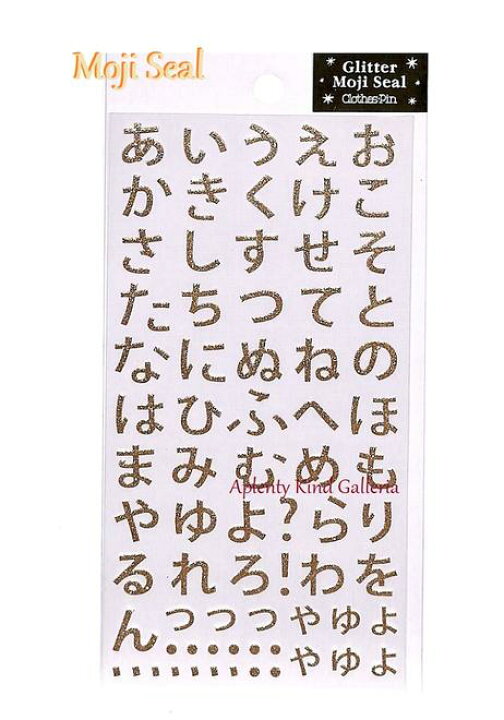 Moji Seal
Glitter
Moji Seal
Clothes-Pin
あいうえお
かきくけこ
さしすせそ
たちつてと
なにぬねの
はひふへほ
まみむめも
Aplenty Kind Galleria
やゆよ?らり
るれろ!わを
んっっっやゆよ
やゆよ